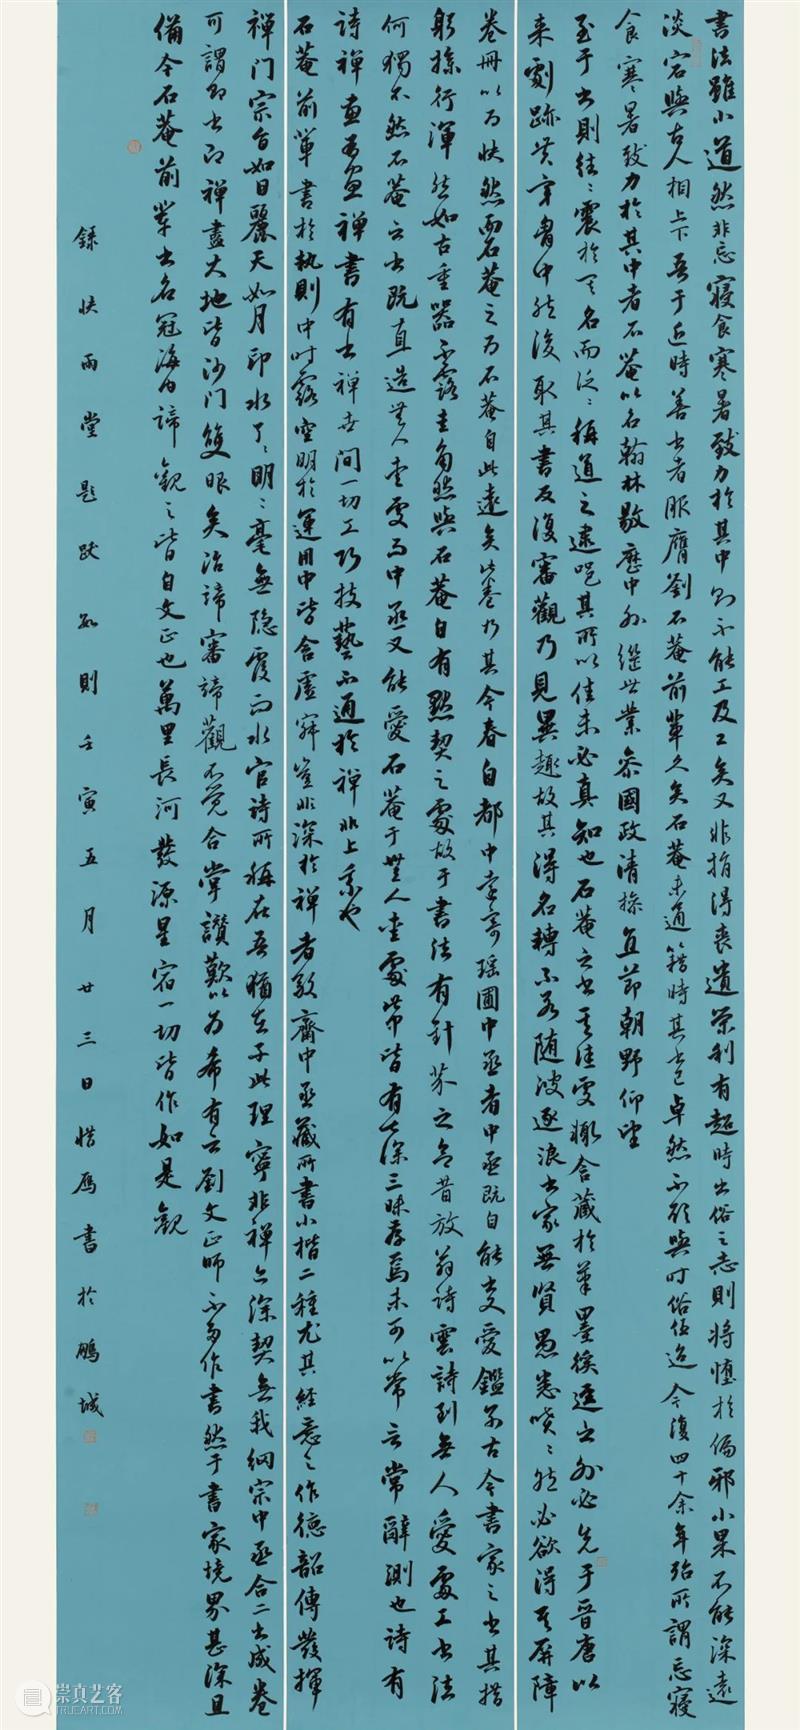 書法雖小道然非忘寢食寒暑致力於其中則不能工及工矣又非捐得喪遺榮利有超時出俗之志則將墮於偏邪小果不能深遠
淡宕與古人相上下吾于近時善書者服膺劉石菴前輩久矣石菴未通籍時其書已卓然不顧與時俗伍迄今復四十余年殆所謂忘寢
食寒暑致力於其中者石菴以名翰林敭歷中外繼世業參國政清操直節朝野仰望
至于書則往往震於其名而泛泛稱道之逮叩其所以佳未必真知也石菴之書其佳處輒含藏於筆墨徯逕之外必先于晉唐以
來劇跡貫穿胷中然後取其書反復審觀乃見異趣故其得名轉不若隨波逐浪書家無賢愚悉噗噗然必欲得其屏障
卷冊以為快然而石菴之為石菴自此遠矣此卷乃其今春自都中寄瑶圃中丞者中丞既自能書愛鑑別古今書家之書其措
躬操行渾然如古重器不露圭角然與石菴自有默契之處故于書法有針芥之合昔放翁詩雲詩到無人愛處工書法
何獨不然石菴之書既直造無人愛處而中丞又能愛石菴于無人愛處此中皆有甚深三昧存焉未可以常言常辭測也詩有
詩禪畫有畫禪書有書禪世間一切工巧技藝不通於禪非上乘也
石菴前輩書於執則中時露空明於運用中皆含虛寂豈非深於禪者敦齋中丞藏所書小楷二種尤其經意之作德韶傳發揮
禪门宗旨如日麗天如月印水了了明明毫無隐覆而水官詩所稱在吾猶在子此理寧非禪之深契無我綱宗中丞合二書成卷
可謂即書即禪盡大地皆沙门雙眼矣治諦審諦觀不覺合掌讚歎以为希有云劉文正師不多作書然于書家境界甚深且
備今石菴前輩書名冠海內諦觀之皆自文正也萬里長河發源星宿一切皆作如是觀
錄快雨堂題跋數則壬寅五月廿三日惜雁書於鵬城
崇真艺客